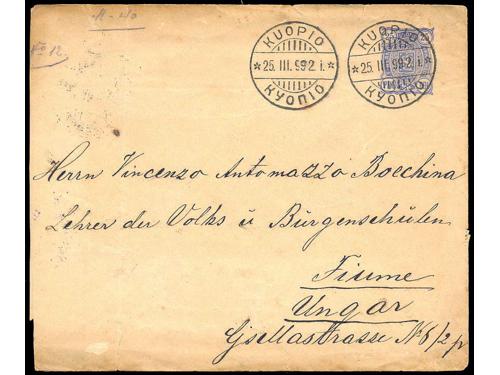 KUOPIO
25. III. 99 2. i.
КУОПІО
KUOPIO
25. III. 99 2. i.
КУОПІО
Herrn Vincenzo Antomazzo Bocchina
Lehrer der Volks u Bürgerschulen
Fiume
Ungar
Gsellastrasse No 6/2 p